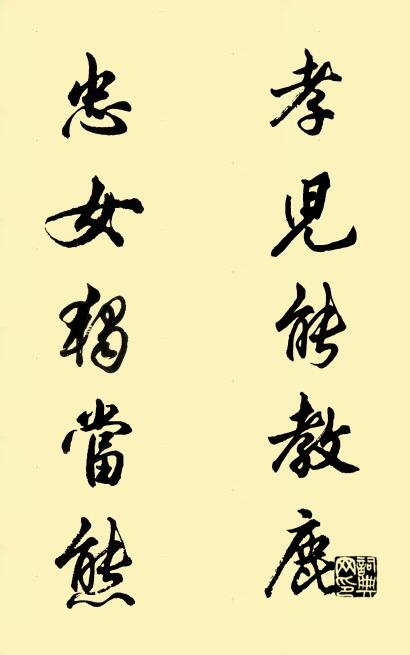 孝兒能教鹿
忠女獨當熊
詞典网印